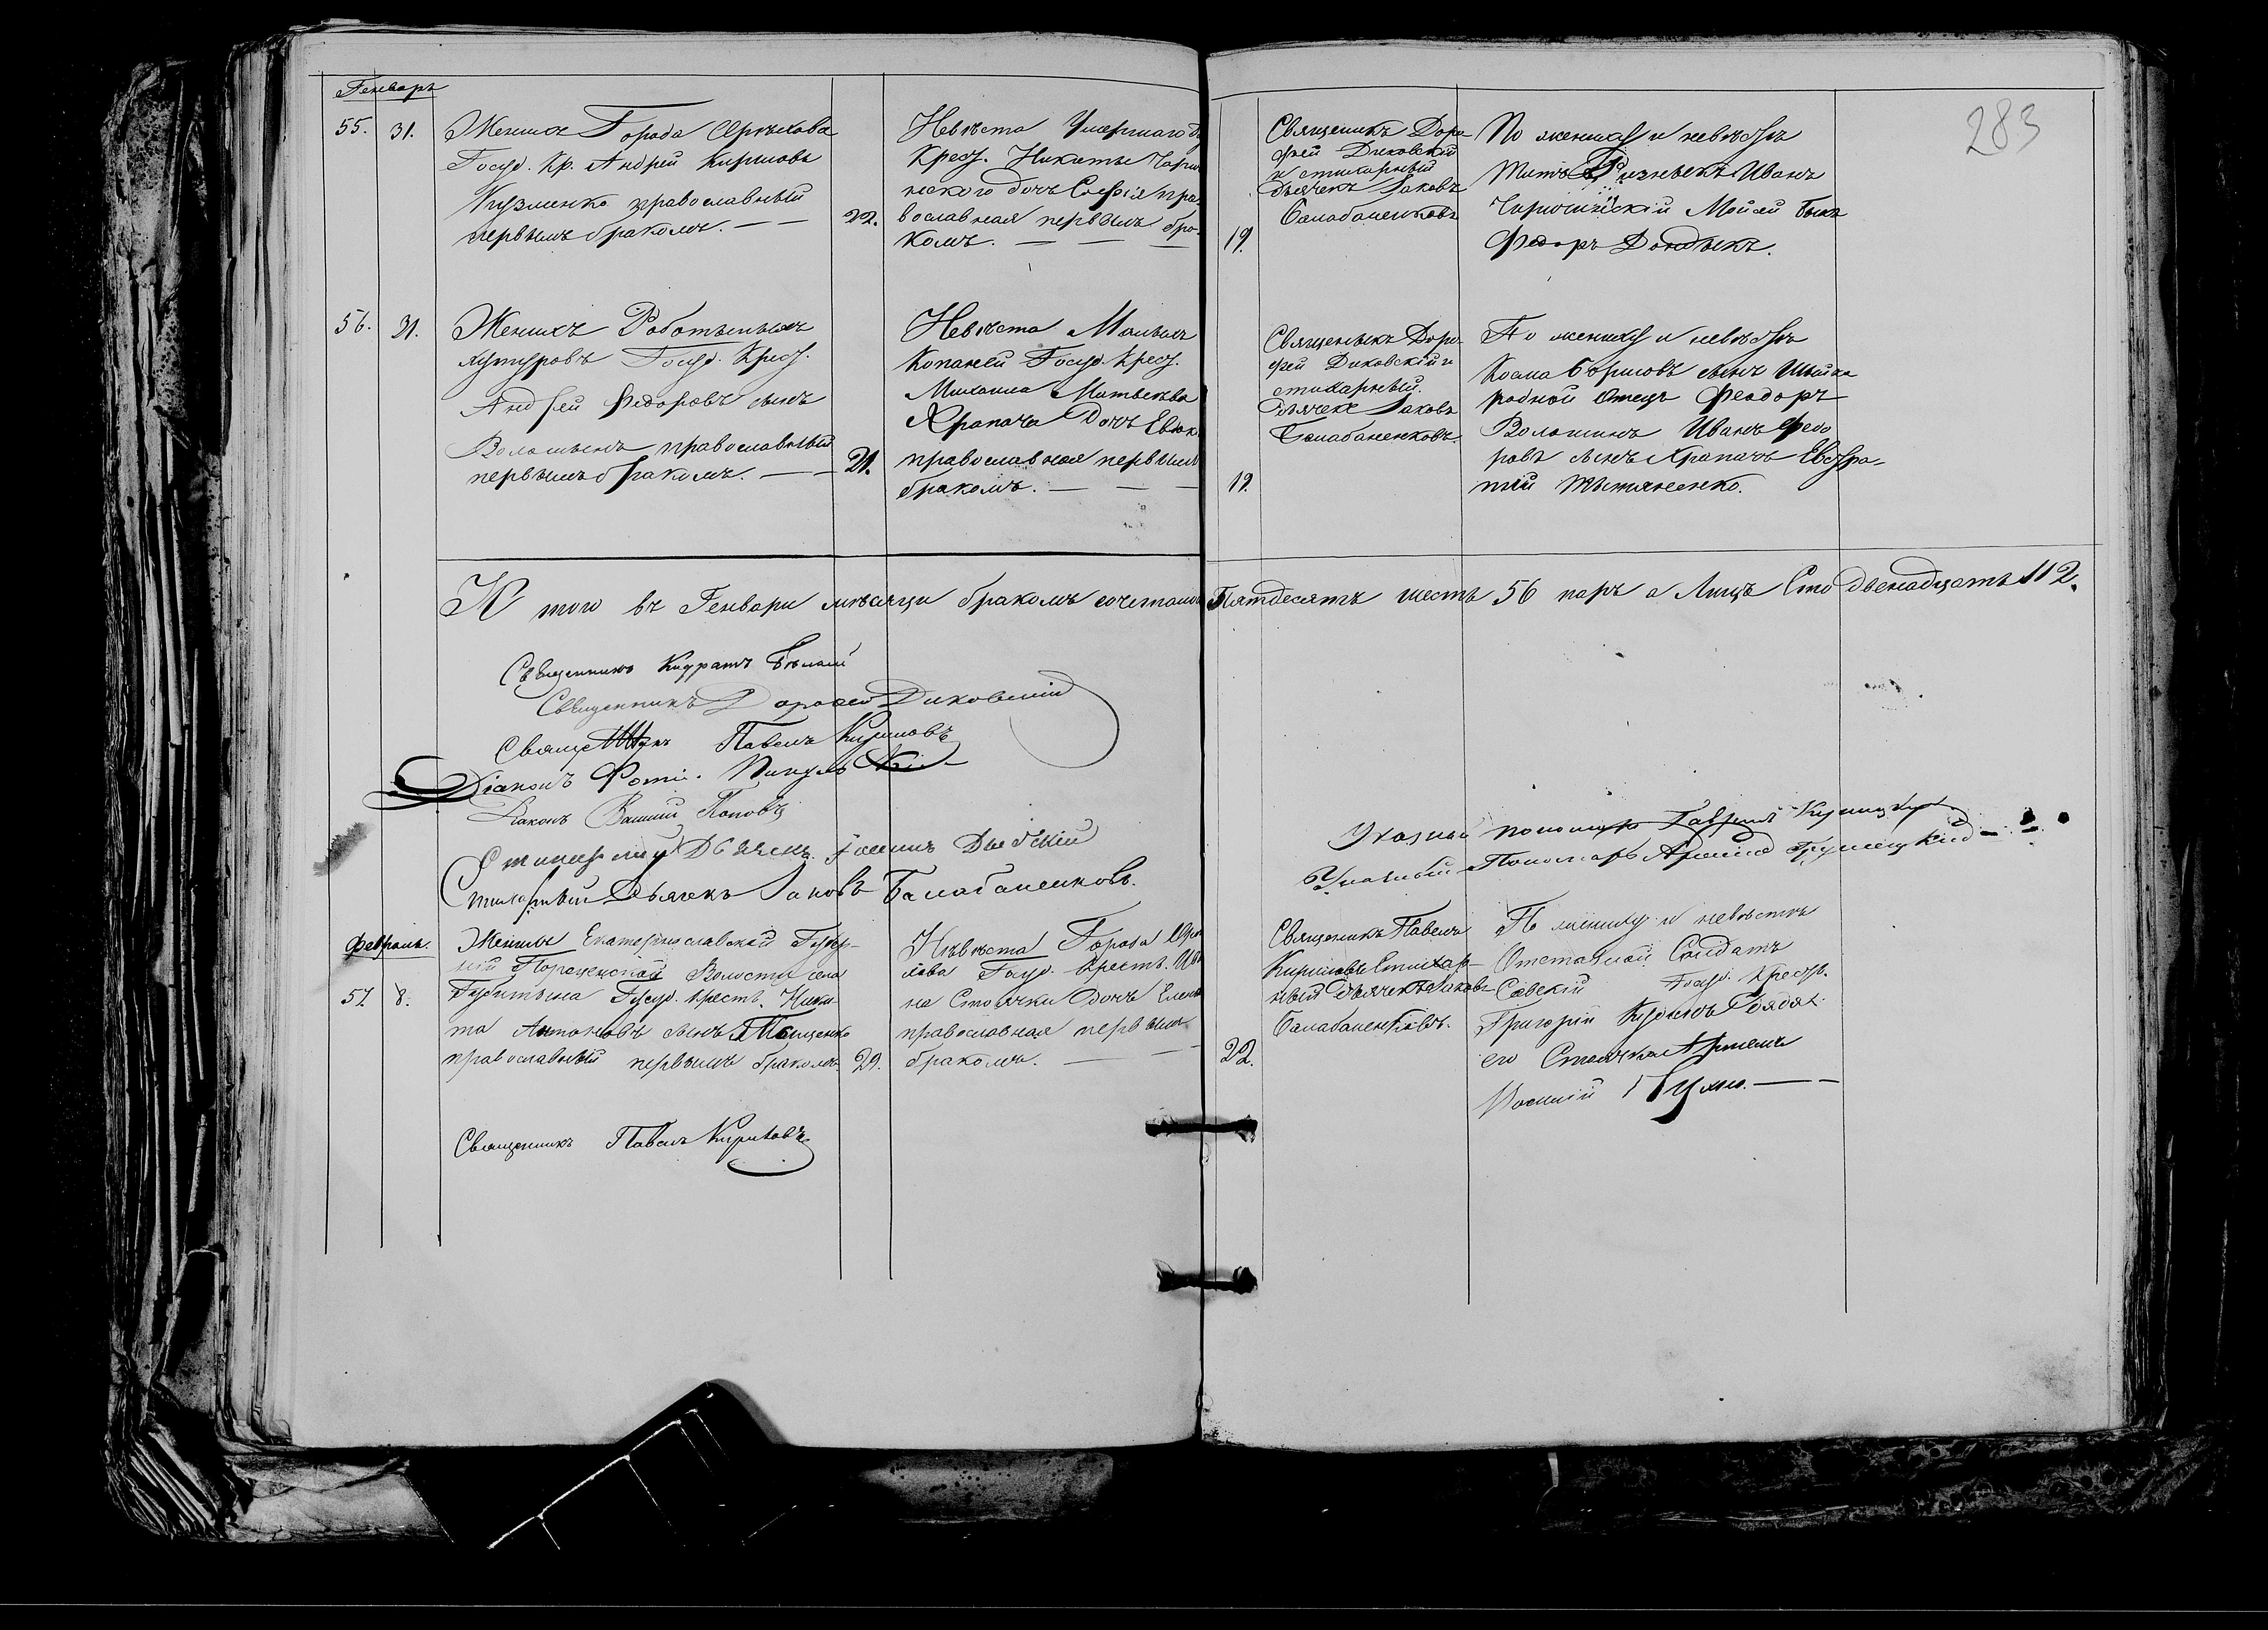 283
Генварь
55. 31.
Женихъ Города Орѣхова
Госуд. Кр. Андрей Кириловъ
Кузменко православный
первымъ бракомъ. — —
22.
Невѣста Умершаго
Крест. Никиты
дочь Софія пра-
вославная первымъ бра-
комъ. — — —
19.
Священикъ Доро-
фей Диковскій
и стихарный
Дьячекъ Іаковъ
Балабаненковъ
По женихѣ и невѣстѣ
Титъ Иванъ
Мойсей Быкъ
Федоръ
56. 31.
Женихъ
хуторовъ Госуд. Крест.
Андрей Федоровъ сынъ
Волошинъ православный
первымъ бракомъ. — —
21.
Невѣста
Копаней Госуд. Крест.
Михаила Матвѣева
Храпача Дочь
православная первымъ
бракомъ. — — —
19.
Священикъ Доро-
фей Диковскій и
стихарный
Дьячекъ Іаковъ
Балабаненковъ.
По женихѣ и невѣстѣ
Косма Борисовъ сынъ
родной Отецъ Феодоръ
Волошинъ Иванъ Федо
ровъ сынъ Храпачъ Евстра-
тій
И того въ Генвари мѣсяцѣ бракомъ сочетано Пятдесятъ шесть 56 паръ а Лицъ Сто двенадцать 112.
Священникъ Кодратъ Бѣлый
Священникъ Дорофей Диковскій
Священникъ Павелъ Кириловъ
Діаконъ Фотій
Діаконъ Василій Поповъ
Стихарный Дьячекъ
Стихарный Дьячекъ Іаковъ Балабаненковъ.
Указный пономарь Гавріилъ
Указный Пономарь
Февраль.
57. 8.
Женихъ Екатеринославской Губер-
ніи Волости села
Госуд. крест. Ники-
та Антоновъ сынъ
православный первымъ бракомъ
29.
Невѣста Города Орѣ-
хова Госуд. Крест.
на Стоячки Дочь Елена
православная первымъ
бракомъ. — —
22.
Священикъ Павелъ
Кириловъ Стихар-
ный Дьячекъ Іаковъ
Балабаненковъ.
По женихѣ и невѣстѣ
Отставной Солдатъ
Савскій Госуд. Крест.
Григорій Дядя
его Стоячка Артемъ
— —
Священникъ Павелъ Кириловъ